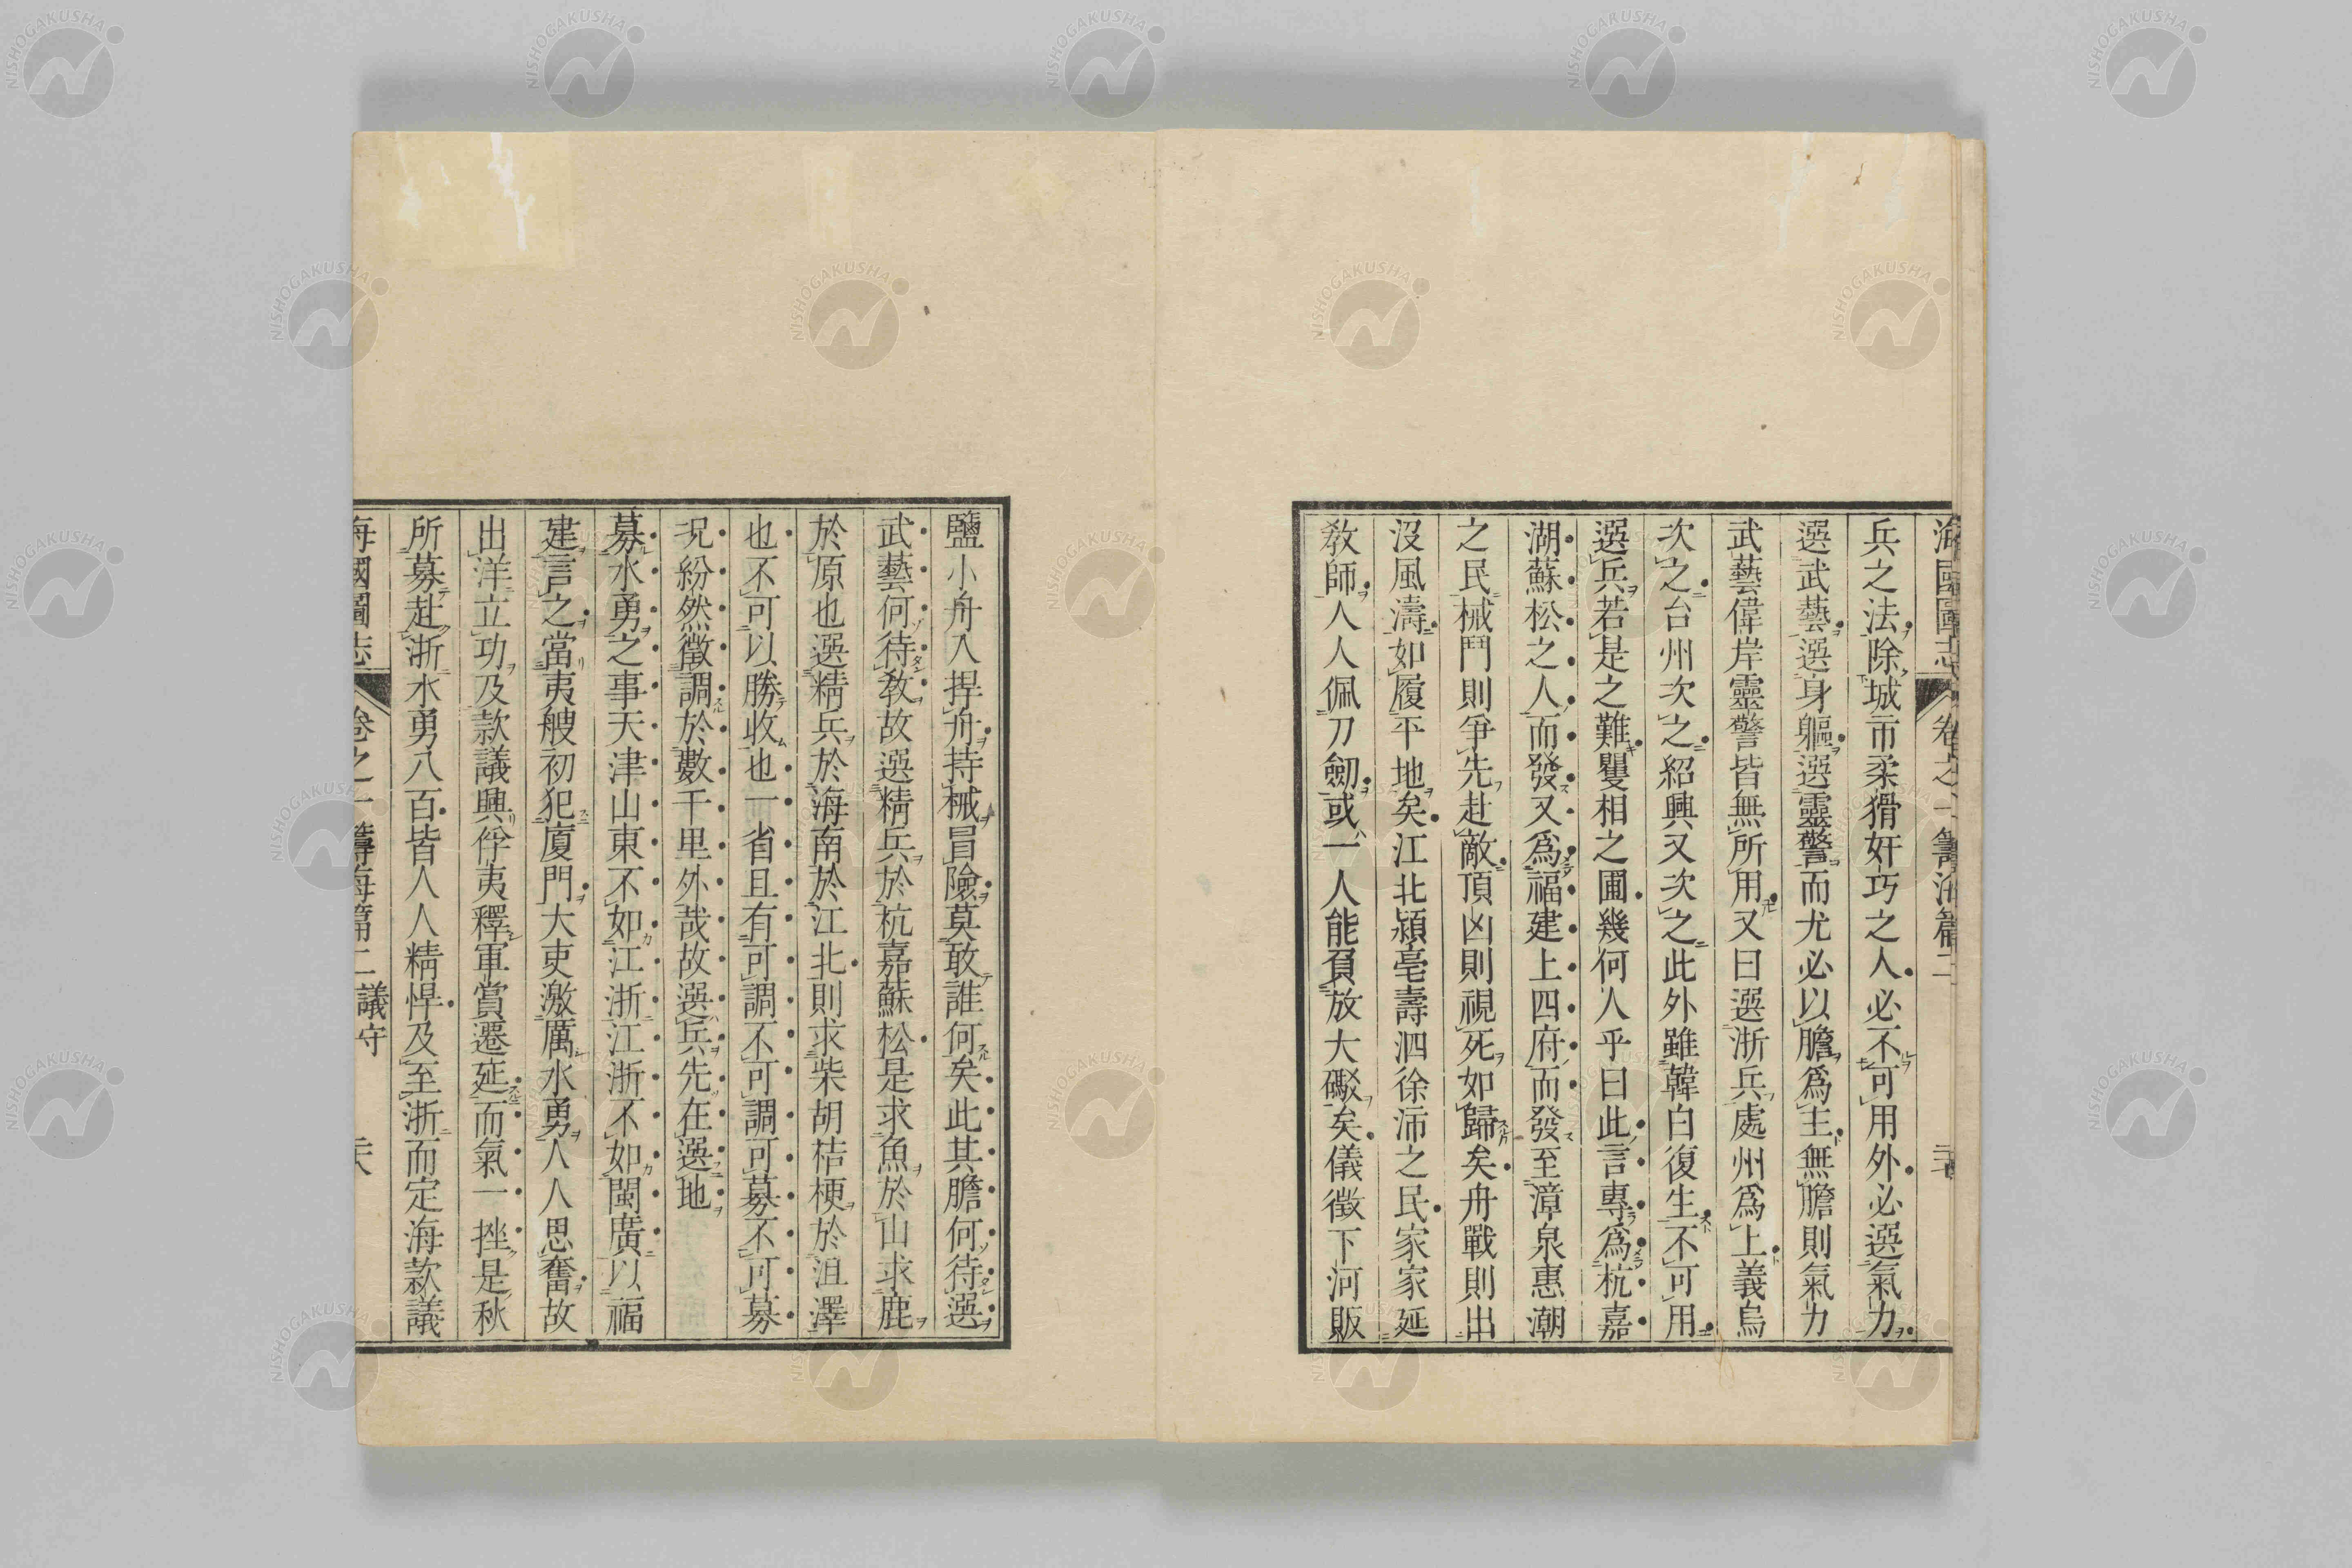 海國圖志 卷之一 籌海篇二
兵之法除城市柔猾奸巧之人必不可用外必選氣力
選武藝選身軀選靈警而尤必以膽爲主無膽則氣力
武藝偉岸靈警皆無所用又曰選浙兵處州爲上義烏
次之台州次之紹興又次之此外雖韓白復生不可用
選兵若是之難矍相之圃幾何人乎曰此言專爲杭嘉
湖蘇松之人而發又爲福建上四府而發至漳泉惠潮
之民械鬥則爭先赴敵頂凶則視死如歸矣舟戰則出
沒風濤如履平地矣江北潁亳壽泗徐沛之民家家延
敎師人人佩刀劒或一人能負放大礮矣儀徵下河販
鹽小舟八捍舟持械冒險莫敢誰何矣此其膽何待選
武藝何待敎故選精兵於杭嘉蘇松是求魚於山求鹿
於原也選精兵於海南於江北則求柴胡桔梗於沮澤
也不可以勝收也一省且有可調不可調可募不可募
况紛然徵調於數千里外哉故選兵先在選地
募水勇之事天津山東不如江浙江浙不如閩廣以福
建言之當夷艘初犯廈門大吏激厲水勇人人思奮故
出洋立功及款議興俘夷釋軍賞遷延而氣一挫是秋
所募赴浙水勇八百皆人人精悍及至浙而定海款議
海國圖志 卷之一 籌海篇二 議守